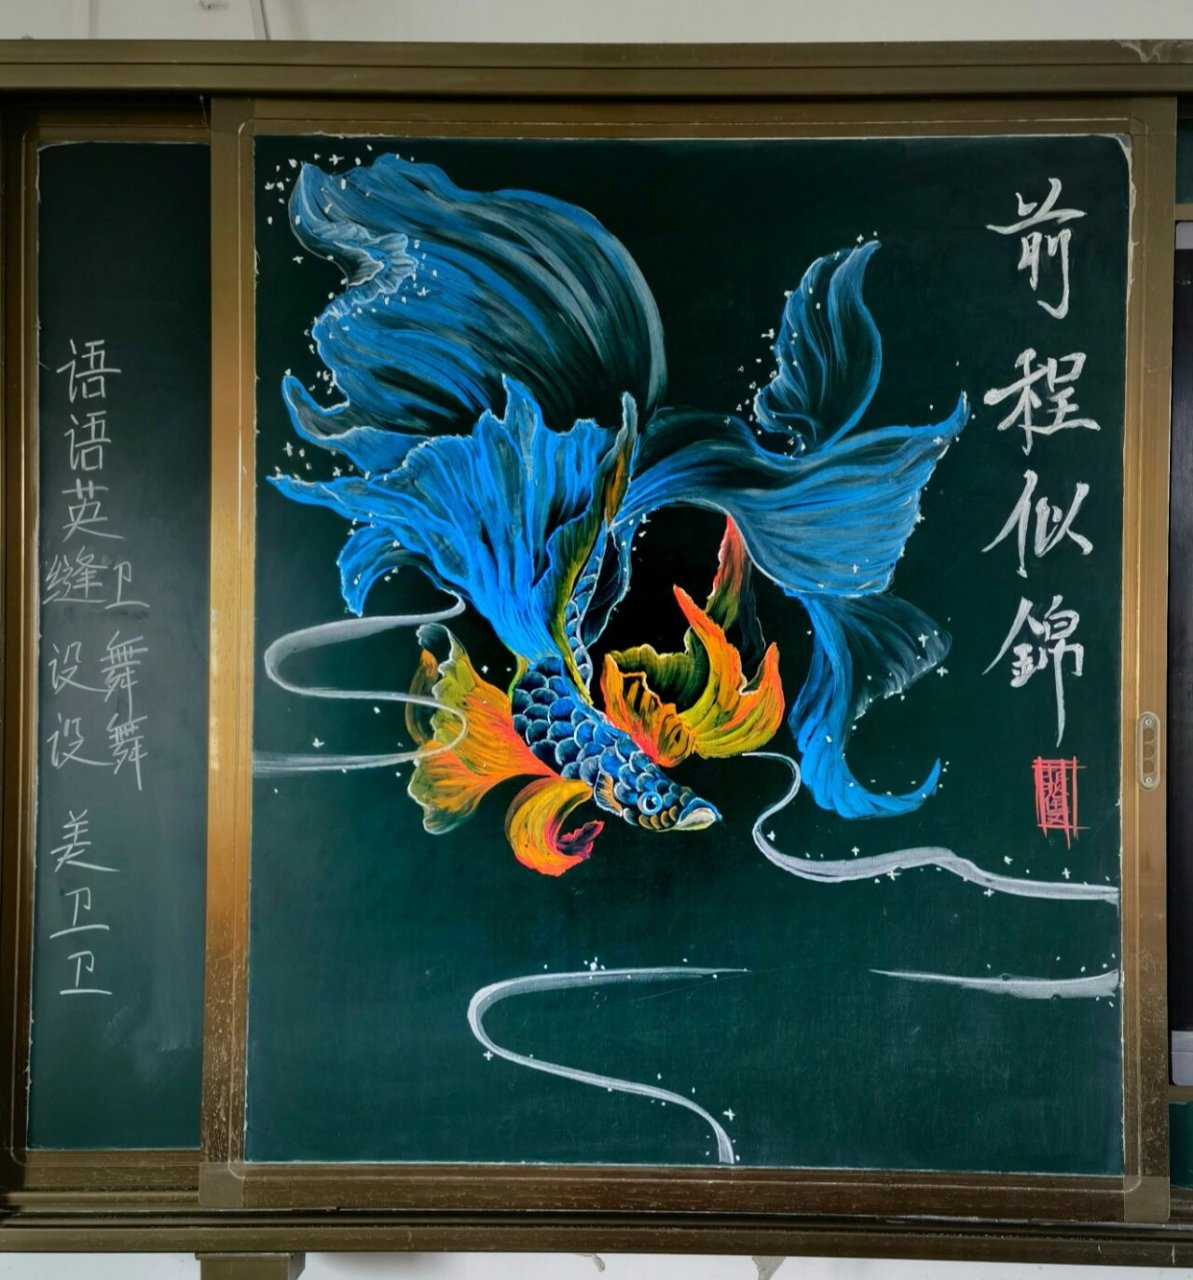 语
语
英
缝 卫
设 舞
设 舞
美
卫
卫
前程似錦